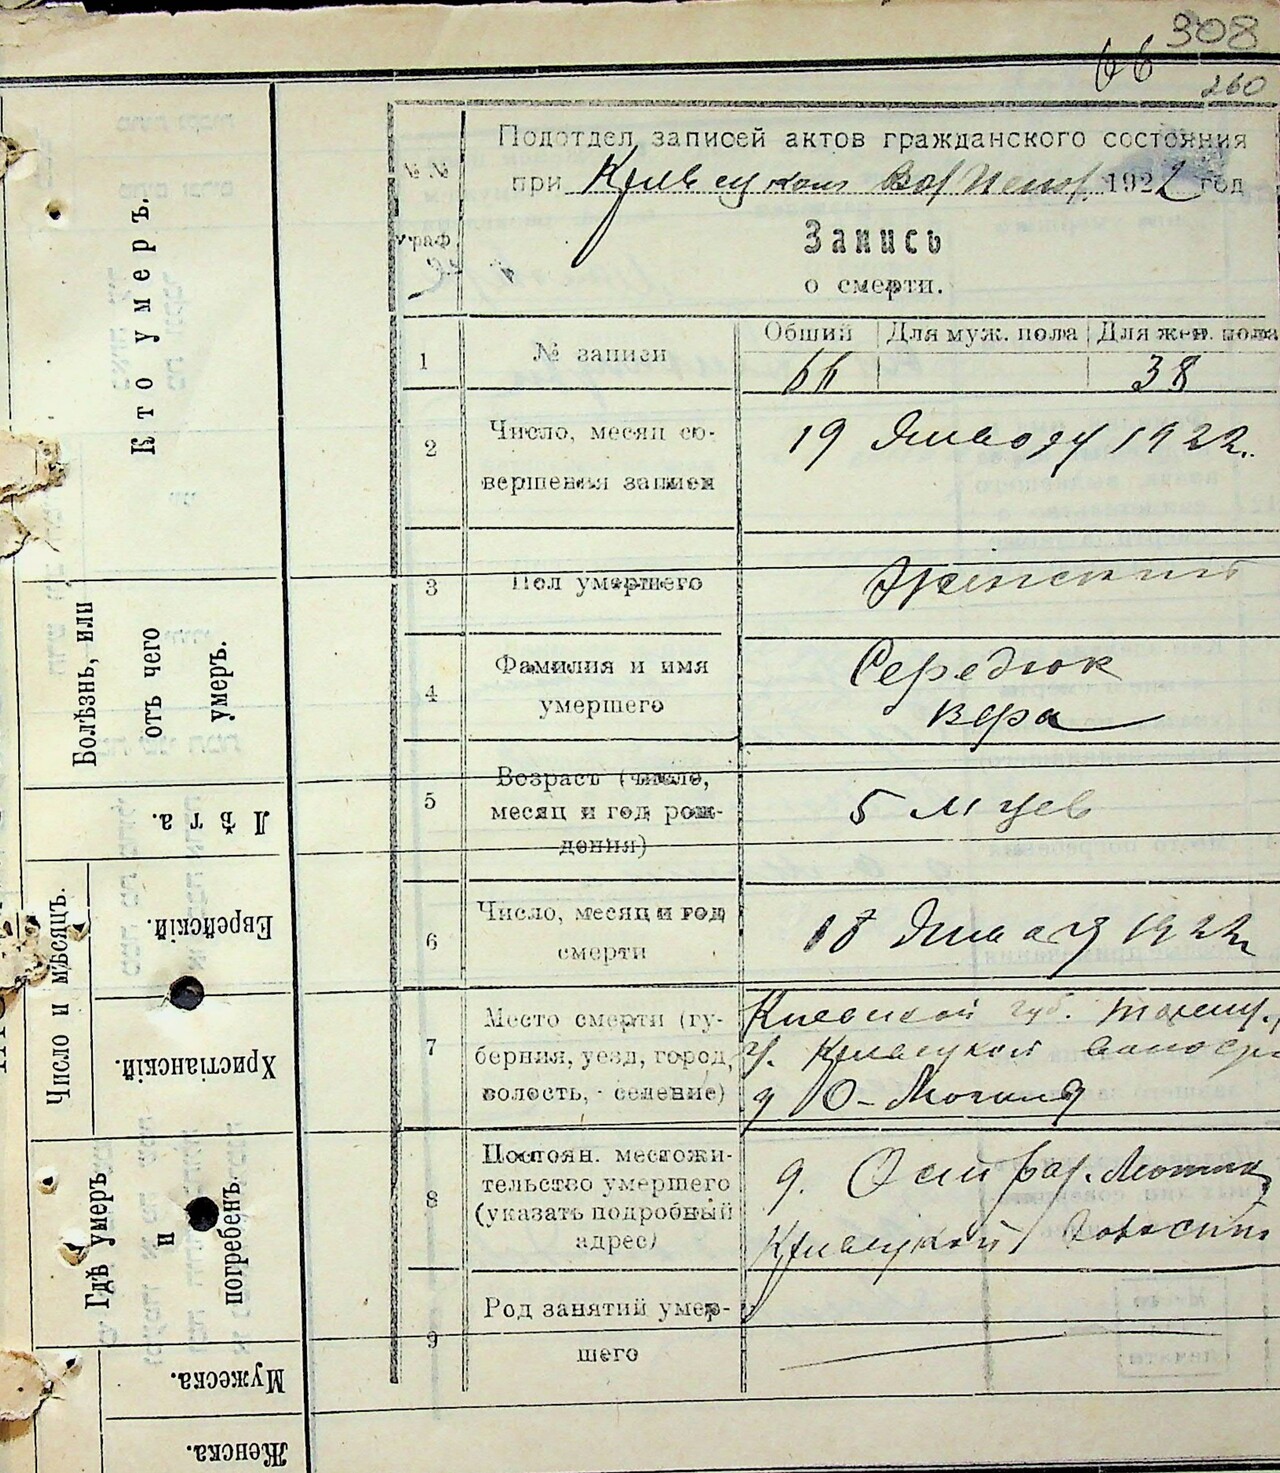 308
66
260
Подотдел записей актов гражданского состояния
при Кривецком Вол Испол. 1922 год
№№
граф.
Запись
о смерти.
1 № записи
Общий Для муж. пола Для жен. пола
66 38
2 Число, месяц со-
вершения записи
19 Января 1922.
3 Пол умершего
Женский
4 Фамилия и имя
умершего
Середюк
Вера
5 Возраст (число,
месяц и год рож-
дения)
5 м цев
6 Число, месяц и год
смерти
18 Января 1922
7 Место смерти (гу-
берния, уезд, город,
волость, - селение)
Киевской губ.
у. волости
д О-Могила
8 Постоян. местожи-
тельство умершего
(указать подробный
адрес)
д. Могила
9 Род занятий умер-
шего
Кто умеръ.
Болѣзнь, или
отъ чего
умеръ.
Лѣта.
Число и мѣсяцъ.
Еврейскій.
Христіанскій.
Гдѣ умеръ
и
погребенъ.
Мужеска.
Женска.